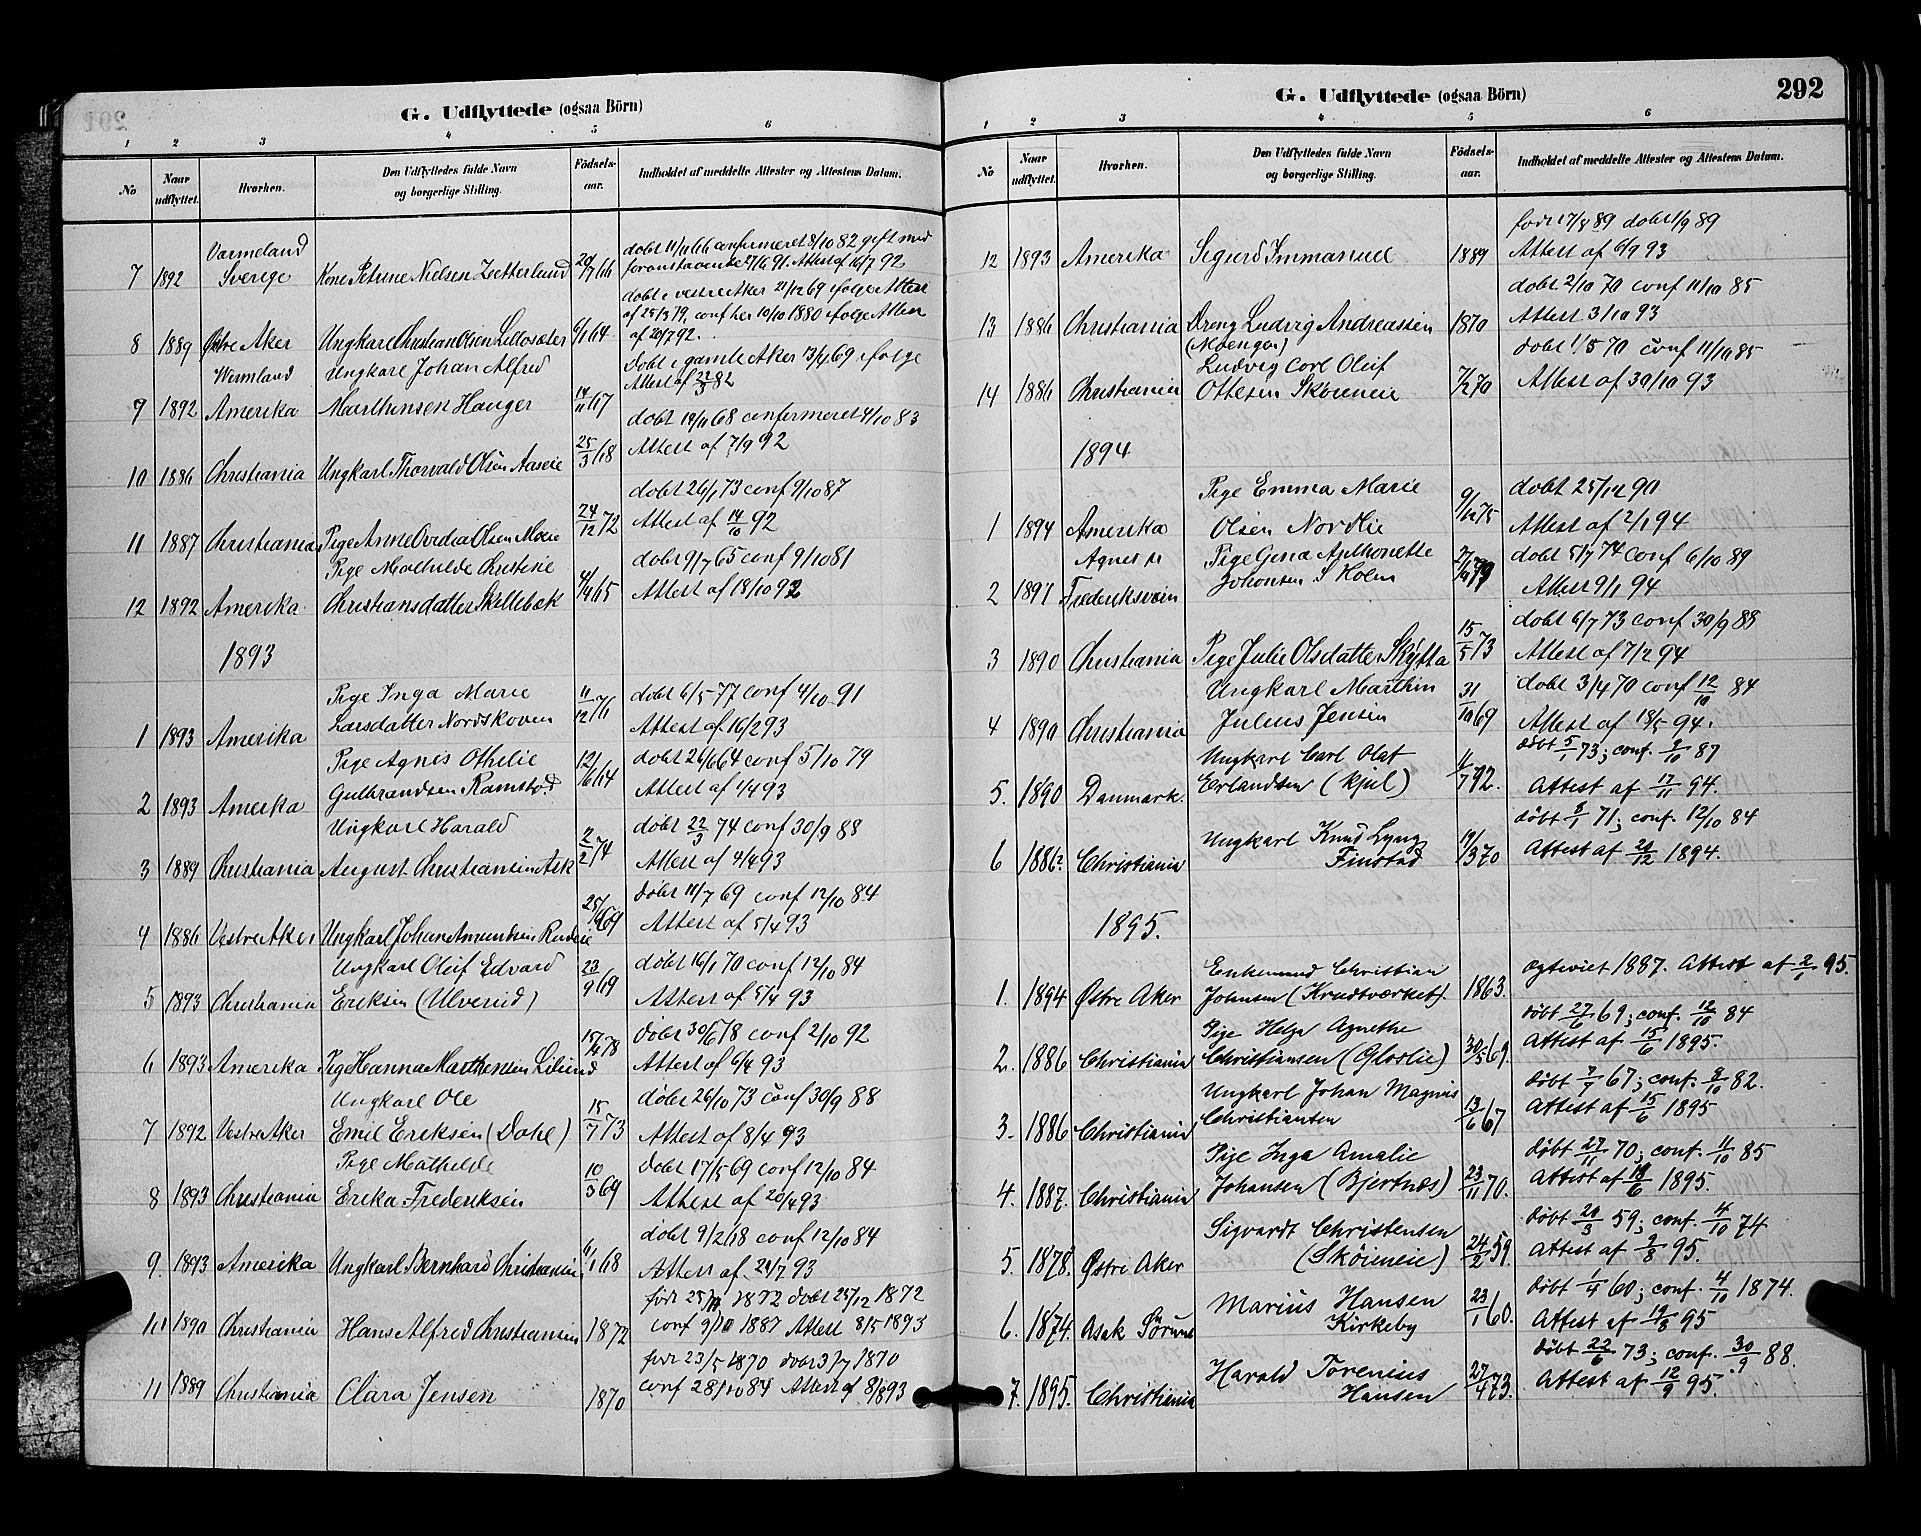 G. Udflyttede (ogsaa Börn)
1 2 3 4 5 6
No Naar udflyttet. Hvorhen. Den Udflyttedes fulde Navn og borgerlige Stilling. Födsels-aar. Indholdet af meddelte Attester og Attestens Datum.
Varmeland döbt 11/11 66 confermeret 8/10 82 gift med
7 1892 Sverige Kone Petrine Nielsen Zetterlund 20/7 66 foranstaaende 27/6 91. Attest af 16/7 92
döbt i vestre Aker 21/12 69 ifølge Attest
af 25/3 79, conf her 10/10 1880 ifolge Attest
8 1889 Østre Aker Ungkarl Christian Olsen Lillosæter 6/1 64 af 20/7 92.
Wermland Ungkarl Johan Alfred Döbt i gamle Aker 13/4 69 ifolge
Attest af 22/3 82
9 1892 Amerika Marthinsen Hauger 14/11 67
döbt 14/11 68 confermeret 4/10 83
10 1886 Christiania Ungkarl Thorvald Olsen Aaseie 25/3 68 Attest af 7/9 92
döbt 26/1 73 conf 9/10 87
11 1887 Christiania Pige Anne Ovidia Olsen Moeie 24/12 72 Attest af 14/10 92
Pige Mathilde Christine döbt 9/7 65 conf 9/10 81
12 1892 Amerika Christiansdatter Skillebæk 4/4 65 Attest af 18/10 92
1893
Pige Inga Marie 11/12 76 döbt 6/5 77 conf 4/10 91
1 1893 Amerika Larsdatter Nordskoven Attest af 16/2 93
Pige Agnes Othelie 12/6 64 döbt 26/6 64 conf 5/10 79
2 1893 Amerika Gulbrandsen Ramstad Attest af 4/4 93
Ungkarl Harald döbt 22/3 74 conf 30/9 88
3 1889 Christiania August Christiansen Ask 2/2 74 Attest af 4/4 93
döbt 11/7 69 conf 12/10 84
4 1886 Vestre Aker Ungkarl Johan Amundsen Rudeie 25/ 69 Attest af 5/4 93
Ungkarl Oluf Edvard döbt 16/1 70 conf 12/10 84
5 1893 Christiania Eriksen (Ulverud) 23/9 69 Attest af 5/4 93
döbt 30/6 78 conf 2/10 92
6 1893 Amerika Pige Hanna Marthinsen Lilund 15/4 78 Attest af 6/4 93
Ungkarl Ole döbt 26/10 73 conf 30/9 88
7 1892 Vestre Aker Emil Eriksen (Dahl) 15/7 73 Attest af 8/4 93
Pige Mathilde döbt 17/5 69 conf 12/10 84
8 1893 Christiania Erika Frederiksen 10/3 69 Attest af 20/4 93
döbt 9/2 68 conf 12/10 84
9. 1893 Amerika Ungkarl Bernhard Christiansen 6/1 68 Attest af 29/7 93
födt 25/11 1872 döbt 25/12 1872
10 1890 Christiania Hans Alfred Christiansen 1872 conf 9/10 1887 Attest 8/5 1893
födt 23/5 1870 döbt 3/7 1870
11 1889 Christiania Clara Jensen 1870 conf 28/10 84 Attest af 8/8 93
G. Udflyttede (ogsaa Börn) 292
1 2 3 4 5 6
No Naar udflyttet. Hvorhen. Den Udflyttedes fulde Navn og borgerlige Stilling. Födsels-aar. Indholdet af meddelte Attester og Attestens Datum.
födt 17/8 89 döbt 1/9 89
12 1893 Amerika Sigurd Immanuel 1889 Attest af 6/9 93
döbt 2/10 70 conf 11/10 85
13 1886 Christiania Dreng Ludvig Andreassen 1870 Attest 3/10 93
(Moengen) döbt 1/5 70 conf 11/10 85
Ludvig Carl Oluf
14 1886 Christiania Ottesen Skøieneie 7/2 70 Attest af 30/10 93
1894
Pige Emma Marie döbt 25/12 90
1 1894 Amerika Olsen Nordlie 9/12 75 Attest af 2/1 94
Agnes st Pige Gina Anthonette döbt 5/7 74 conf 6/10 89
2 1891 Frederiksværn Johansen S Holm Attest 9/1 94
döbt 6/7 73 conf 30/9 88
3 1890 Christiania Pige Julie Olsdatter Skÿtta 15/5 73 Attest af 7/2 94
Ungkarl Marthin 31/10 69 döbt 3/4 70 conf 12/10 84
4 1890 Christiania Julius Jensen Attest af 18/5 94.
Ungkarl Carl Olaf döbt 5/1 73; conf. 9/10 87
5. 1890 Danmark. Erlandsen (Kjul) 11/7 72. Attest af 17/11 94.
döbt 8/1 71; conf. 12/10 84
6 1886? Christiania Ungkarl Knud Lyng Finstad 19/3 70 Attest af 20/12 1894.
1895.
Enkemand Christian ægteviet 1887. Attest af 2/1 95.
1. 1894 Østre Aker Johnsen (Krudtværket). 1863.
Pige Helga Agnethe döbt 27/6 69; conf. 12/10 84
2. 1886 Christiania Christiansen (Gloslie) 30/5 69. Attest af 15/6 1895.
Ungkarl Johan Magnus döbt 7/7 67; conf. 8/10 82.
3. 1886 Christiania Christiansen 13/6 67 Attest af 15/6 1895
Pige Inga Amalie döbt 27/11 70; conf. 11/10 85
4. 1887. Christiania Johansen (Bjertnæs) 23/11 70. Attest af 18/6 1895.
Sigvardt Christensen döbt 20/3 59; conf. 4/10 74
5. 1878. Østre Aker (Skøieneie) 24/2 59. Attest af 9/8 95.
Marius Hansen döbt 1/4 60; conf. 4/10 1874.
6. 1874. Asak Sörum Kirkeby 23/1 60. Attest af 19/8 95
Harald Torenius döbt 22/6 73; conf. 30/9 88.
7. 1895. Christiania Hansen 27/4 73. Attest af 12/9 95.